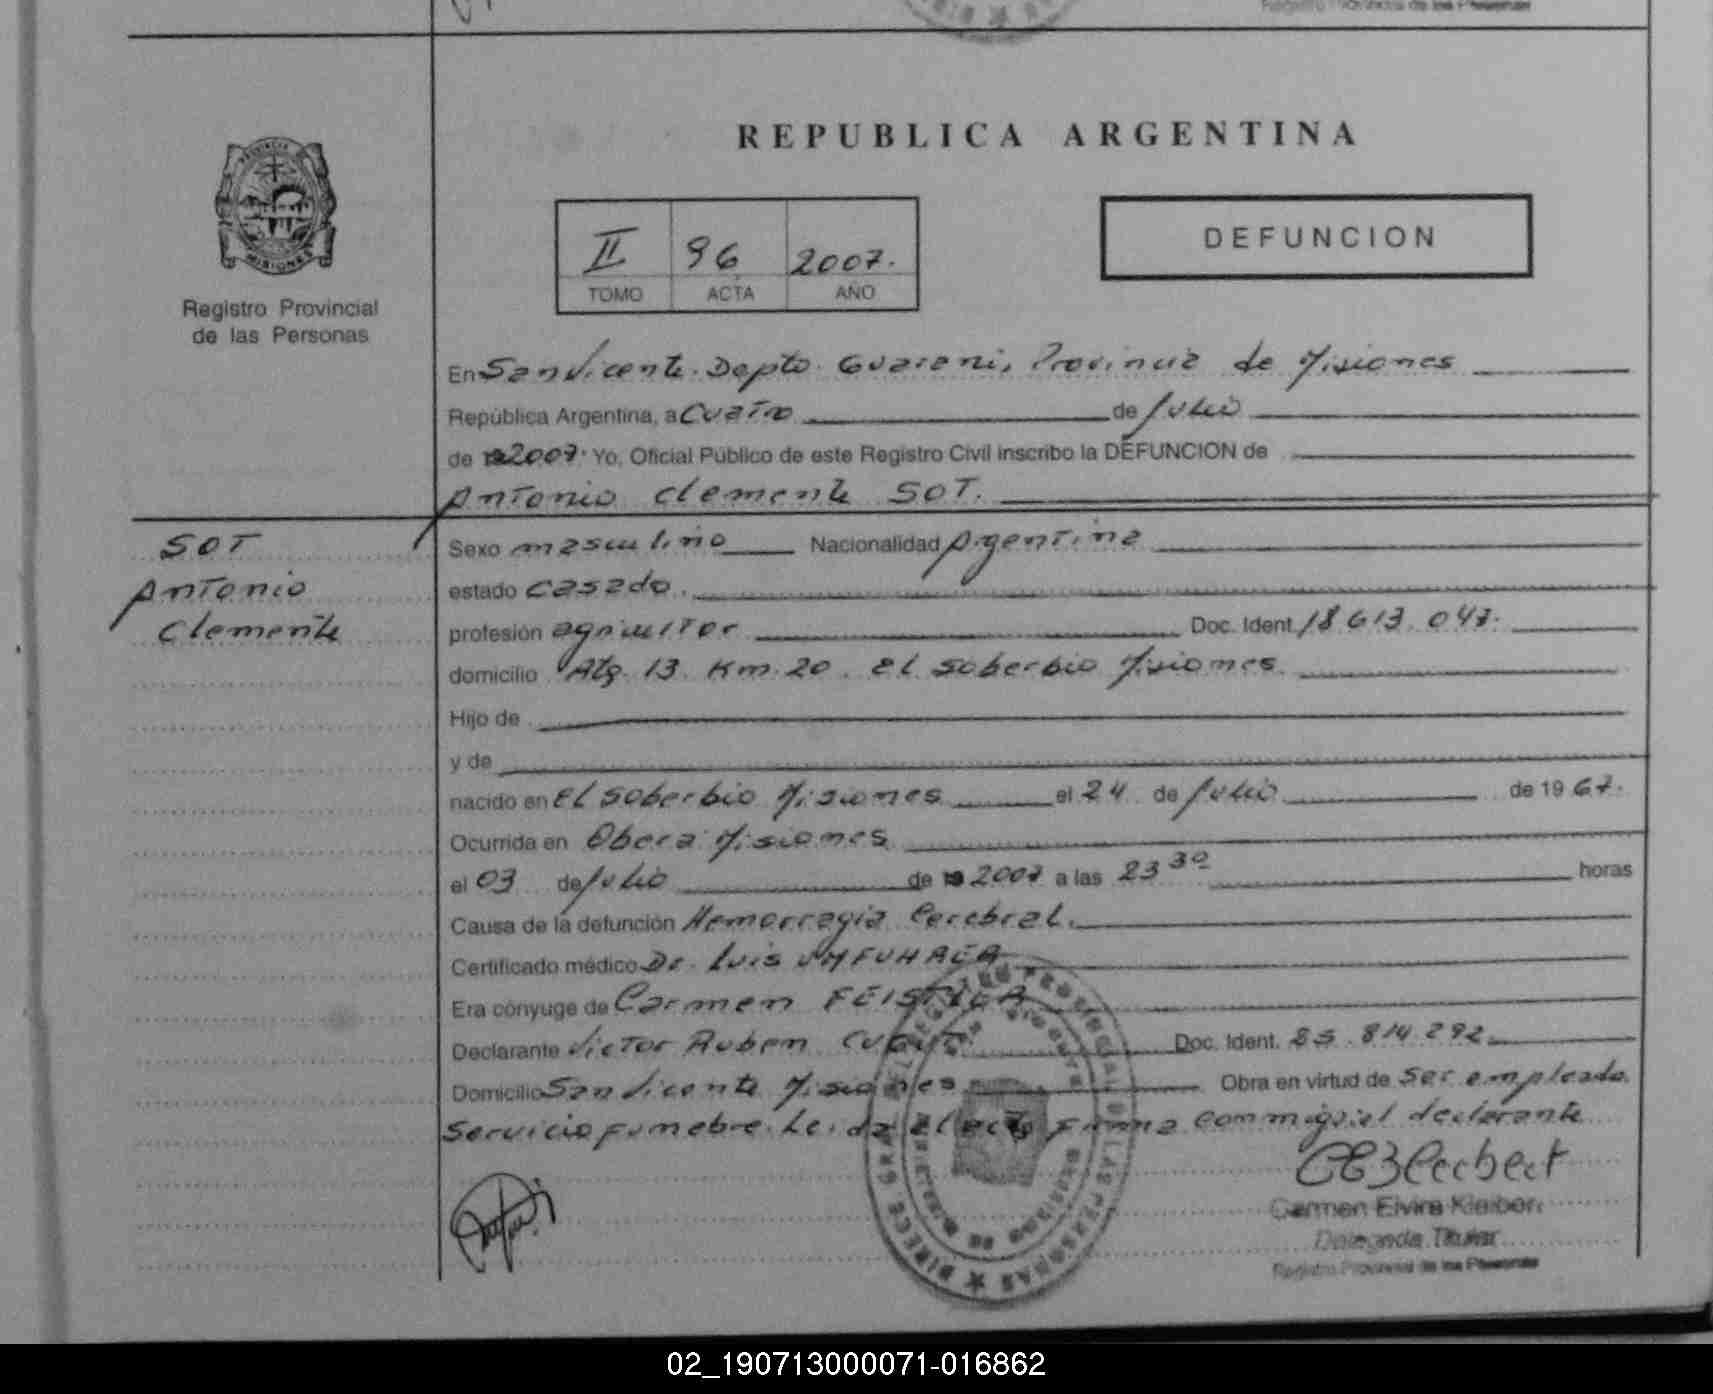 Registro Provincial de las Personas
REPUBLICA ARGENTINA
PROVINCIA DE
MISIONES
Registro Provincial
de las Personas
II 96 2007.
TOMO ACTA AÑO
DEFUNCION
En San Vicente. Depto. Guarani, Provincia de Misiones
República Argentina, a Cuatro de Julio
de 2007. Yo, Oficial Público de este Registro Civil inscribo la DEFUNCION de
Antonio Clemente SOT.
SOT
Antonio
Clemente
Sexo masculino Nacionalidad Argentina
estado casado.
profesión agricultor Doc. Ident. 18.613.047.
domicilio 13. Km. 20. El Soberbio Misiones
Hijo de
y de
nacido en El Soberbio Misiones el 24 de Julio de 1967.
Ocurrida en Oberá Misiones
el 03 de Julio de 2007 a las 23 30 horas
Causa de la defunción Hemorragia Cerebral.
Certificado médico Dr. Luis
Era cónyuge de Carmen
Declarante Victor Ruben Doc. Ident. 814.292
Domicilio San Vicente Misiones Obra en virtud de ser empleado
Servicio funebre. Leida el acta firma conmigo el declarante
Carmen Elvira Kleiber
Delegada Titular
Registro Provincial de las Personas
02_190713000071-016862